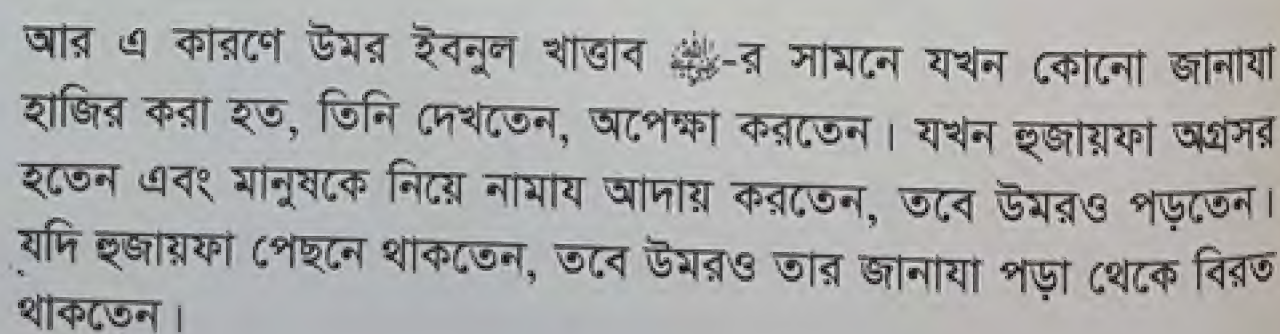 আর এ কারণে উমর ইবনুল খাত্তাব ﷺ-র সামনে যখন কোনো জানাযা
হাজির করা হত, তিনি দেখতেন, অপেক্ষা করতেন। যখন হুজায়ফা অগ্রসর
হতেন এবং মানুষকে নিয়ে নামায আদায় করতেন, তবে উমরও পড়তেন।
যদি হুজায়ফা পেছনে থাকতেন, তবে উমরও তার জানাযা পড়া থেকে বিরত
থাকতেন।